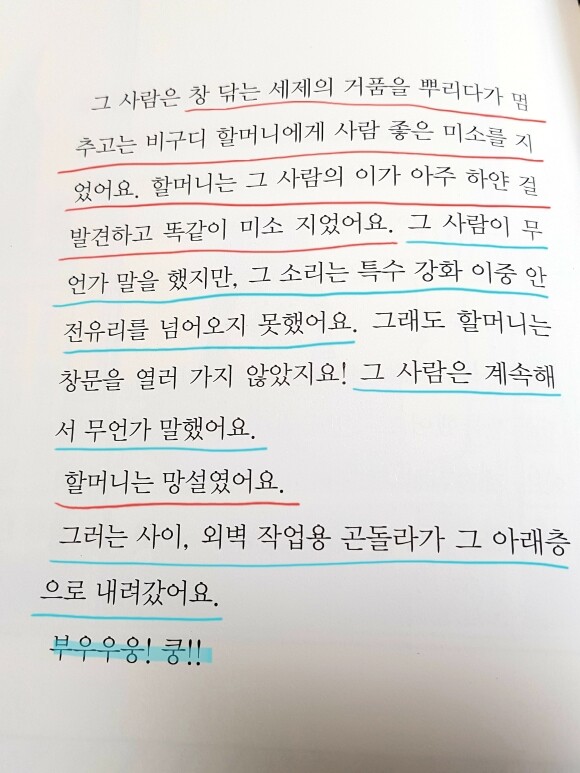 그 사람은 창 닦는 세제의 거품을 뿌리다가 멈
추고는 비구디 할머니에게 사람 좋은 미소를 지
었어요. 할머니는 그 사람의 이가 아주 하얀 걸
발견하고 똑같이 미소 지었어요. 그 사람이 무
언가 말을 했지만, 그 소리는 특수 강화 이중 안
전유리를 넘어오지 못했어요. 그래도 할머니는
창문을 열러 가지 않았지요! 그 사람은 계속해
서 무언가 말했어요.
할머니는 망설였어요.
그러는 사이, 외벽 작업용 곤돌라가 그 아래층
으로 내려갔어요.
부우우웅! 쿵!!